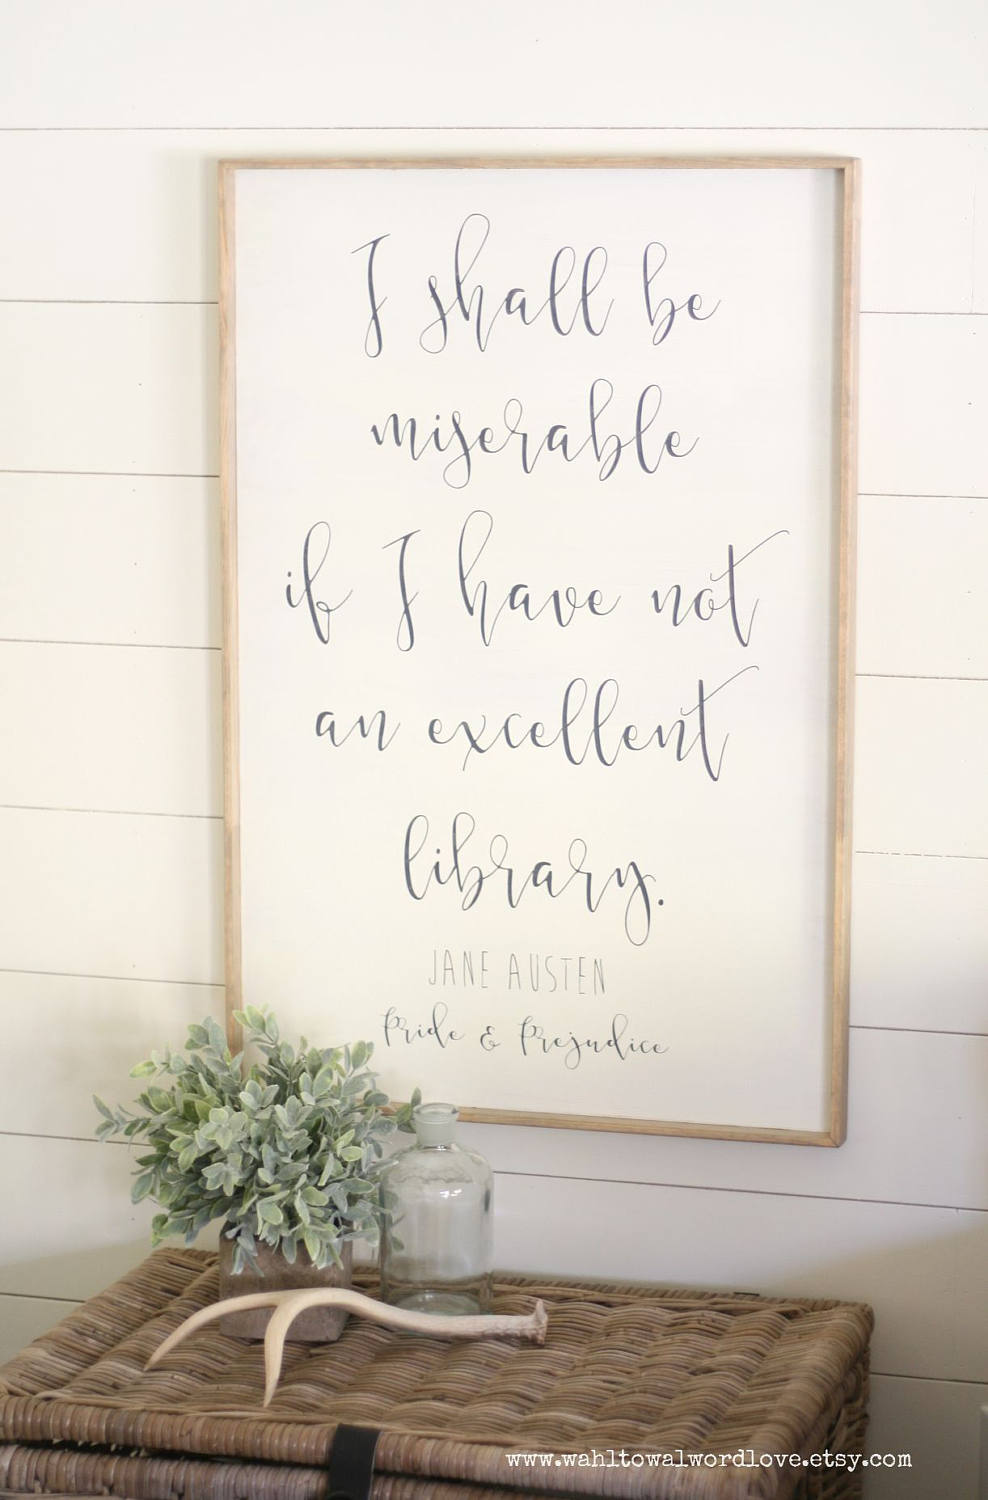 I shall be
miserable
if I have not
an excellent
library.
JANE AUSTEN
Pride & Prejudice
www.wahltowalwordlove.etsy.com